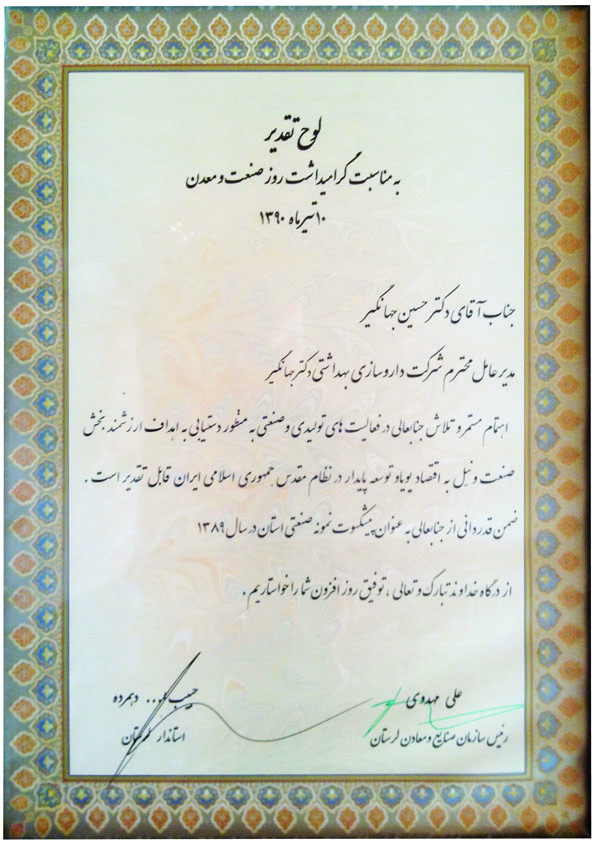 لوح تقدیر
به مناسبت گرامیداشت روز صنعت و معدن
۱۰ تیرماه ۱۳۹۰
جناب آقای دکتر حسین جهانگیر
مدیر عامل محترم شرکت داروسازی بهداشتی دکتر جهانگیر
اهتمام مستمر و تلاش جنابعالی در فعالیت های تولیدی و صنعتی به منظور دستیابی به اهداف ارزشمند بخش
صنعت و نیل به اقتصاد پویا و توسعه پایدار در نظام مقدس جمهوری اسلامی ایران قابل تقدیر است .
ضمن قدردانی از جنابعالی به عنوان پیشکسوت نمونه صنعتی استان در سال ۱۳۸۹
از درگاه خداوند تبارک و تعالی ، توفیق روز افزون شما را خواستاریم .
علی مهدوی
رئیس سازمان صنایع و معادن لرستان
حبیب ... دهمرده
استاندار لرستان